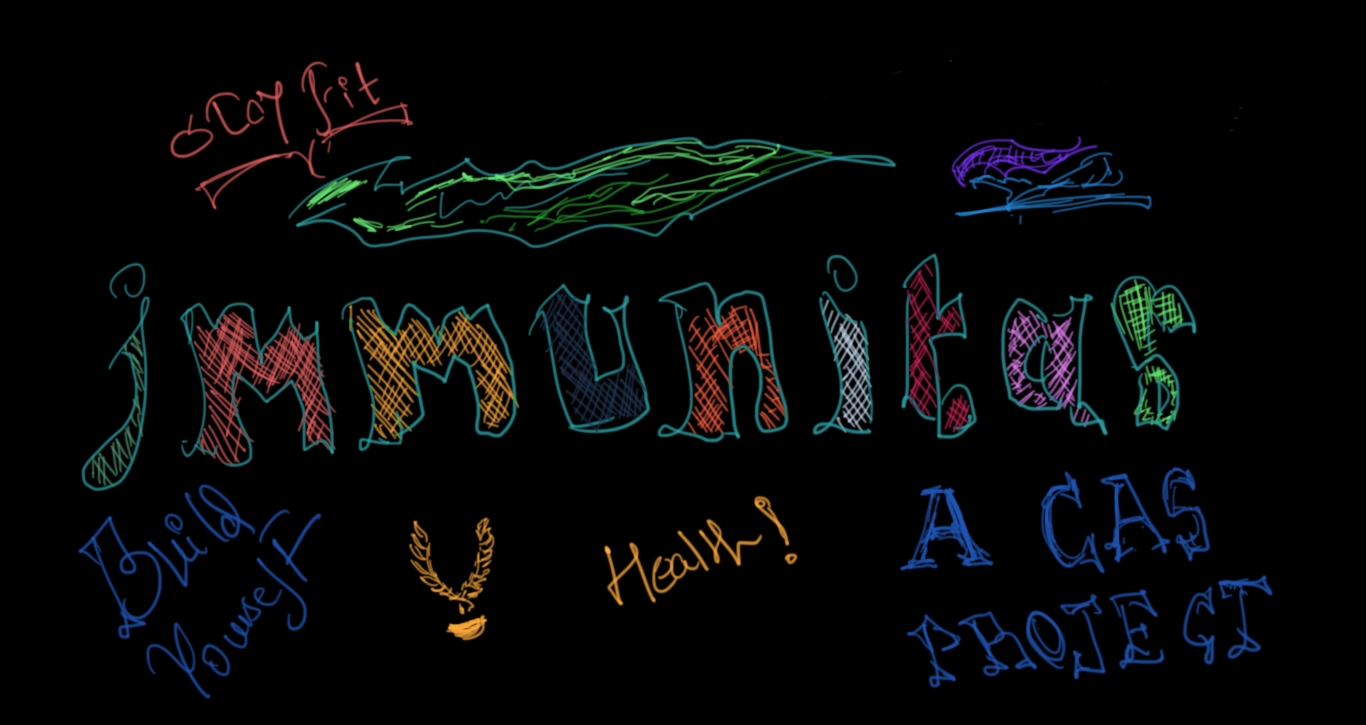 Stay Fit
immunitas
Build
Yourself
Health!
A CAS
PROJECT